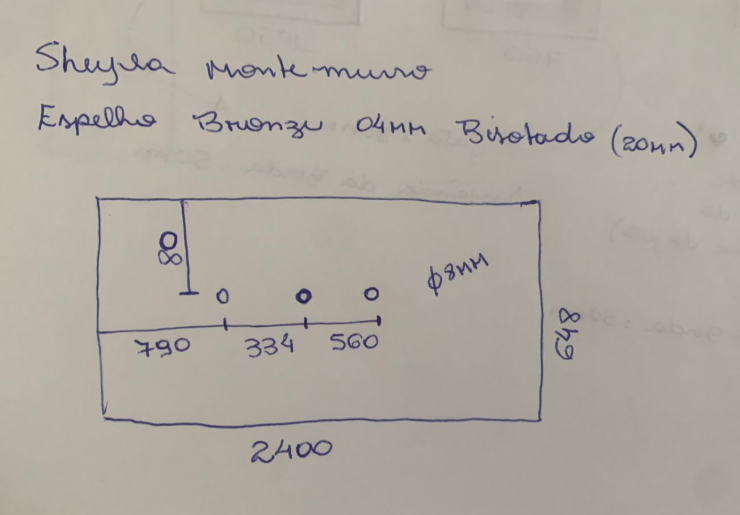 Sheyla Montemurro
Espelho Bronze 04mm Bisotado (20mm)
80
φ8mm
790 334 560
648
2400